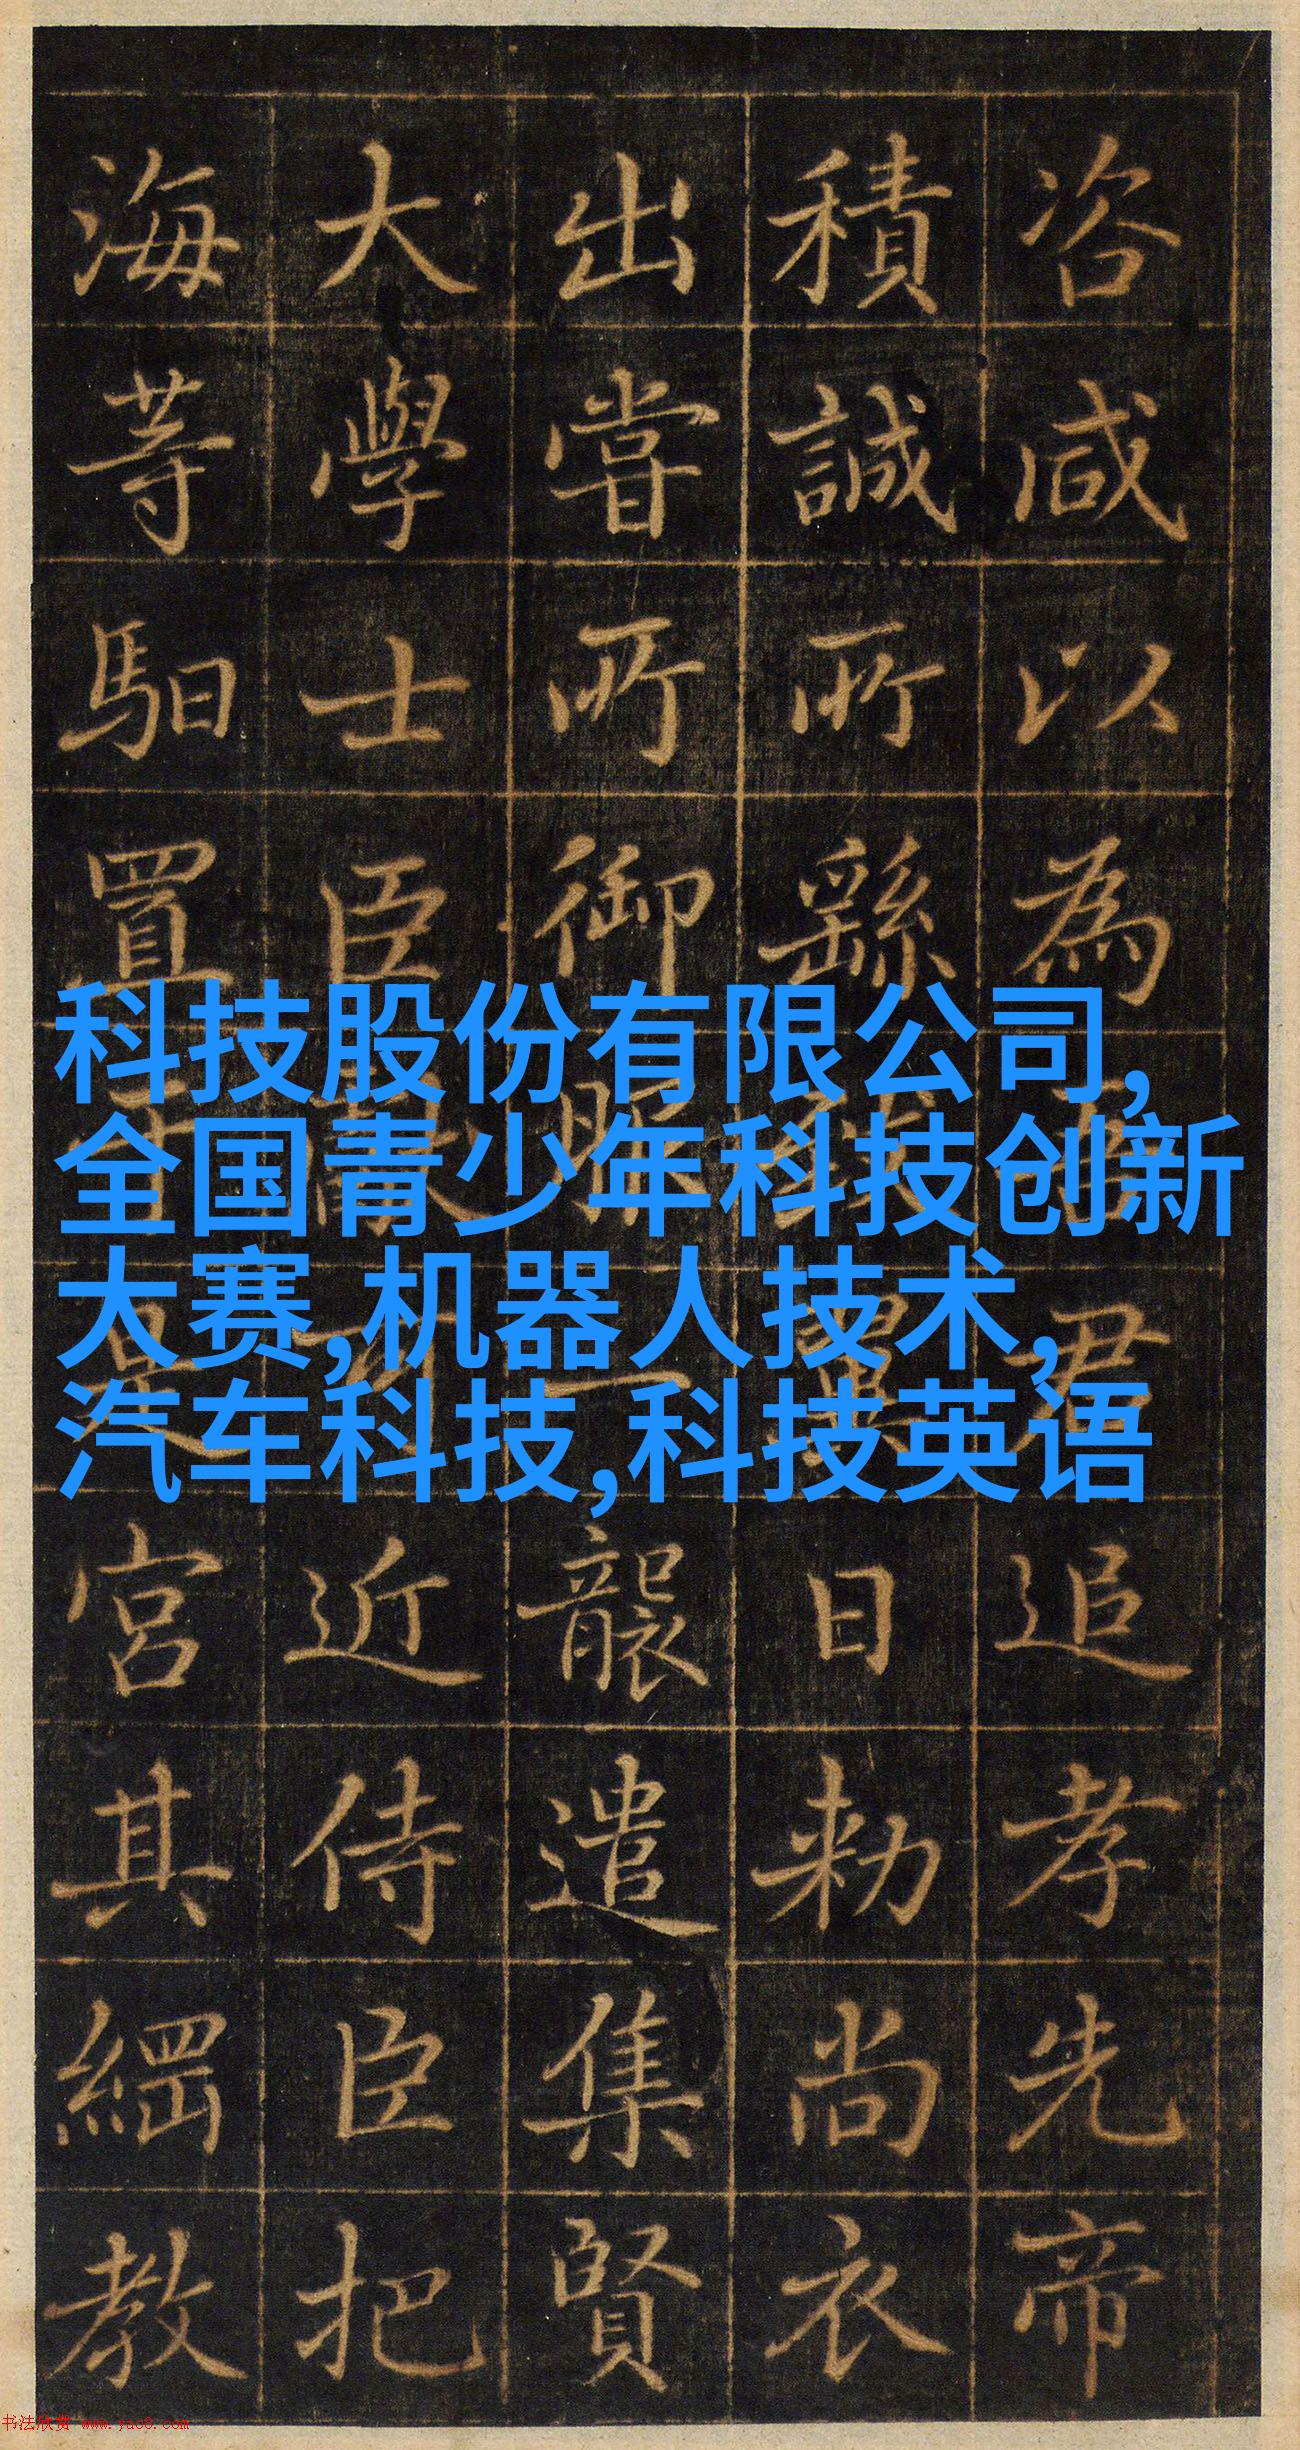 科技股份有限公司,
全国青少年科技创新
大赛,机器人技术,
汽车科技,科技英语
咨咸以為君追孝先帝
積誠所繇翼日勑尚衣
出嘗所御服一襲遣集賢
大學士臣近侍臣把
海等馹置是宮其綱教
书法欣赏 www.yac8.com